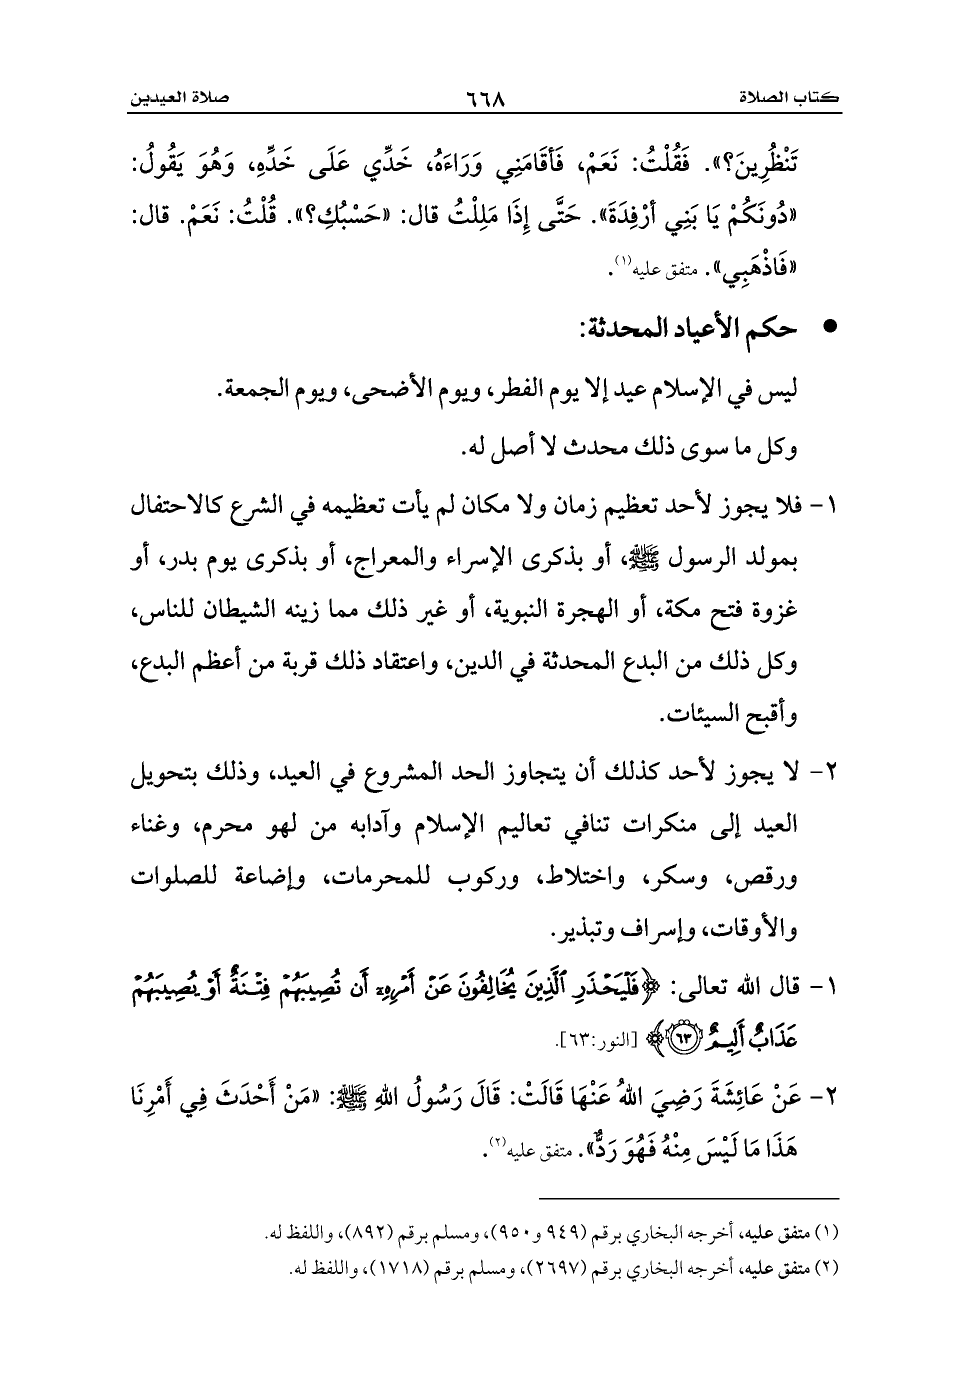 كتاب الصلاة ٦٦٨ صلاة العيدين
تَنْظُرِينَ؟». فَقُلْتُ: نَعَمْ، فَأقَامَنِي وَرَاءَهُ، خَدِّي عَلَى خَدِّهِ، وَهُوَ يَقُولُ:
«دُونَكُمْ يَا بَنِي أرْفِدَةَ». حَتَّى إِذَا مَلِلْتُ قال: «حَسْبُكِ؟». قُلْتُ: نَعَمْ. قال:
«فَاذْهَبِي». متفق عليه(١).
● حكم الأعياد المحدثة:
ليس في الإسلام عيد إلا يوم الفطر، ويوم الأضحى، ويوم الجمعة.
وكل ما سوى ذلك محدث لا أصل له.
١- فلا يجوز لأحد تعظيم زمان ولا مكان لم يأت تعظيمه في الشرع كالاحتفال
بمولد الرسول ﷺ، أو بذكرى الإسراء والمعراج، أو بذكرى يوم بدر، أو
غزوة فتح مكة، أو الهجرة النبوية، أو غير ذلك مما زينه الشيطان للناس،
وكل ذلك من البدع المحدثة في الدين، واعتقاد ذلك قربة من أعظم البدع،
وأقبح السيئات.
٢- لا يجوز لأحد كذلك أن يتجاوز الحد المشروع في العيد، وذلك بتحويل
العيد إلى منكرات تنافي تعاليم الإسلام وآدابه من لهو محرم، وغناء
ورقص، وسكر، واختلاط، وركوب للمحرمات، وإضاعة للصلوات
والأوقات، وإسراف وتبذير.
١- قال الله تعالى: ﴿فَلْيَحْذَرِ ٱلَّذِينَ يُخَالِفُونَ عَنْ أَمْرِهِۦٓ أَن تُصِيبَهُمْ فِتْنَةٌ أَوْ يُصِيبَهُمْ
عَذَابٌ أَلِيمٌ ٦٣﴾ [النور:٦٣].
٢- عَنْ عَائِشَةَ رَضِيَ اللهُ عَنْهَا قَالَتْ: قَالَ رَسُولُ اللهِ ﷺ: «مَنْ أَحْدَثَ فِي أَمْرِنَا
هَذَا مَا لَيْسَ مِنْهُ فَهُوَ رَدٌّ». متفق عليه(٢).
(١) متفق عليه، أخرجه البخاري برقم (٩٤٩ و٩٥٠)، ومسلم برقم (٨٩٢)، واللفظ له.
(٢) متفق عليه، أخرجه البخاري برقم (٢٦٩٧)، ومسلم برقم (١٧١٨)، واللفظ له.